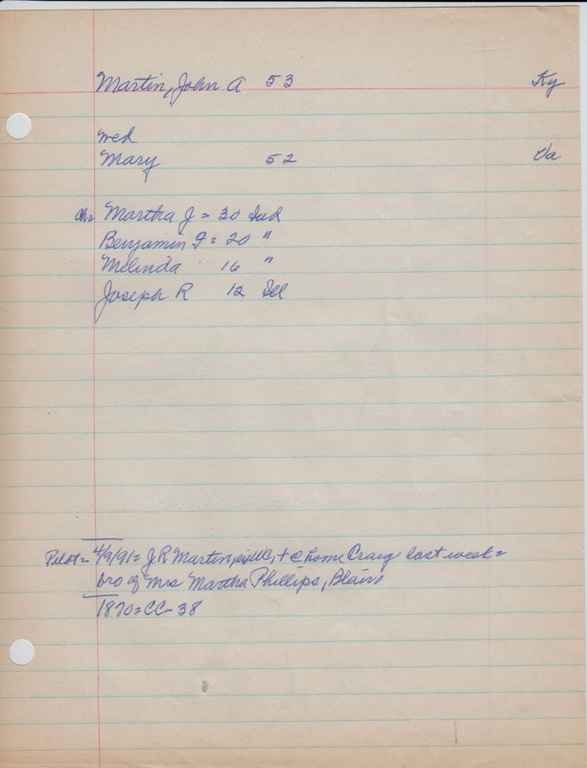 Martin, John A 53 Ky
wed
Mary 52 Va
Ch= Martha J = 30 Ind
Benjamin F = 20 "
Melinda 16 "
Joseph R 12 Ill
Pilot= 4/9/91= J R Martin, + @ home Craig last week=
bro of Mrs Martha Phillips, Blair
1870=CC 38